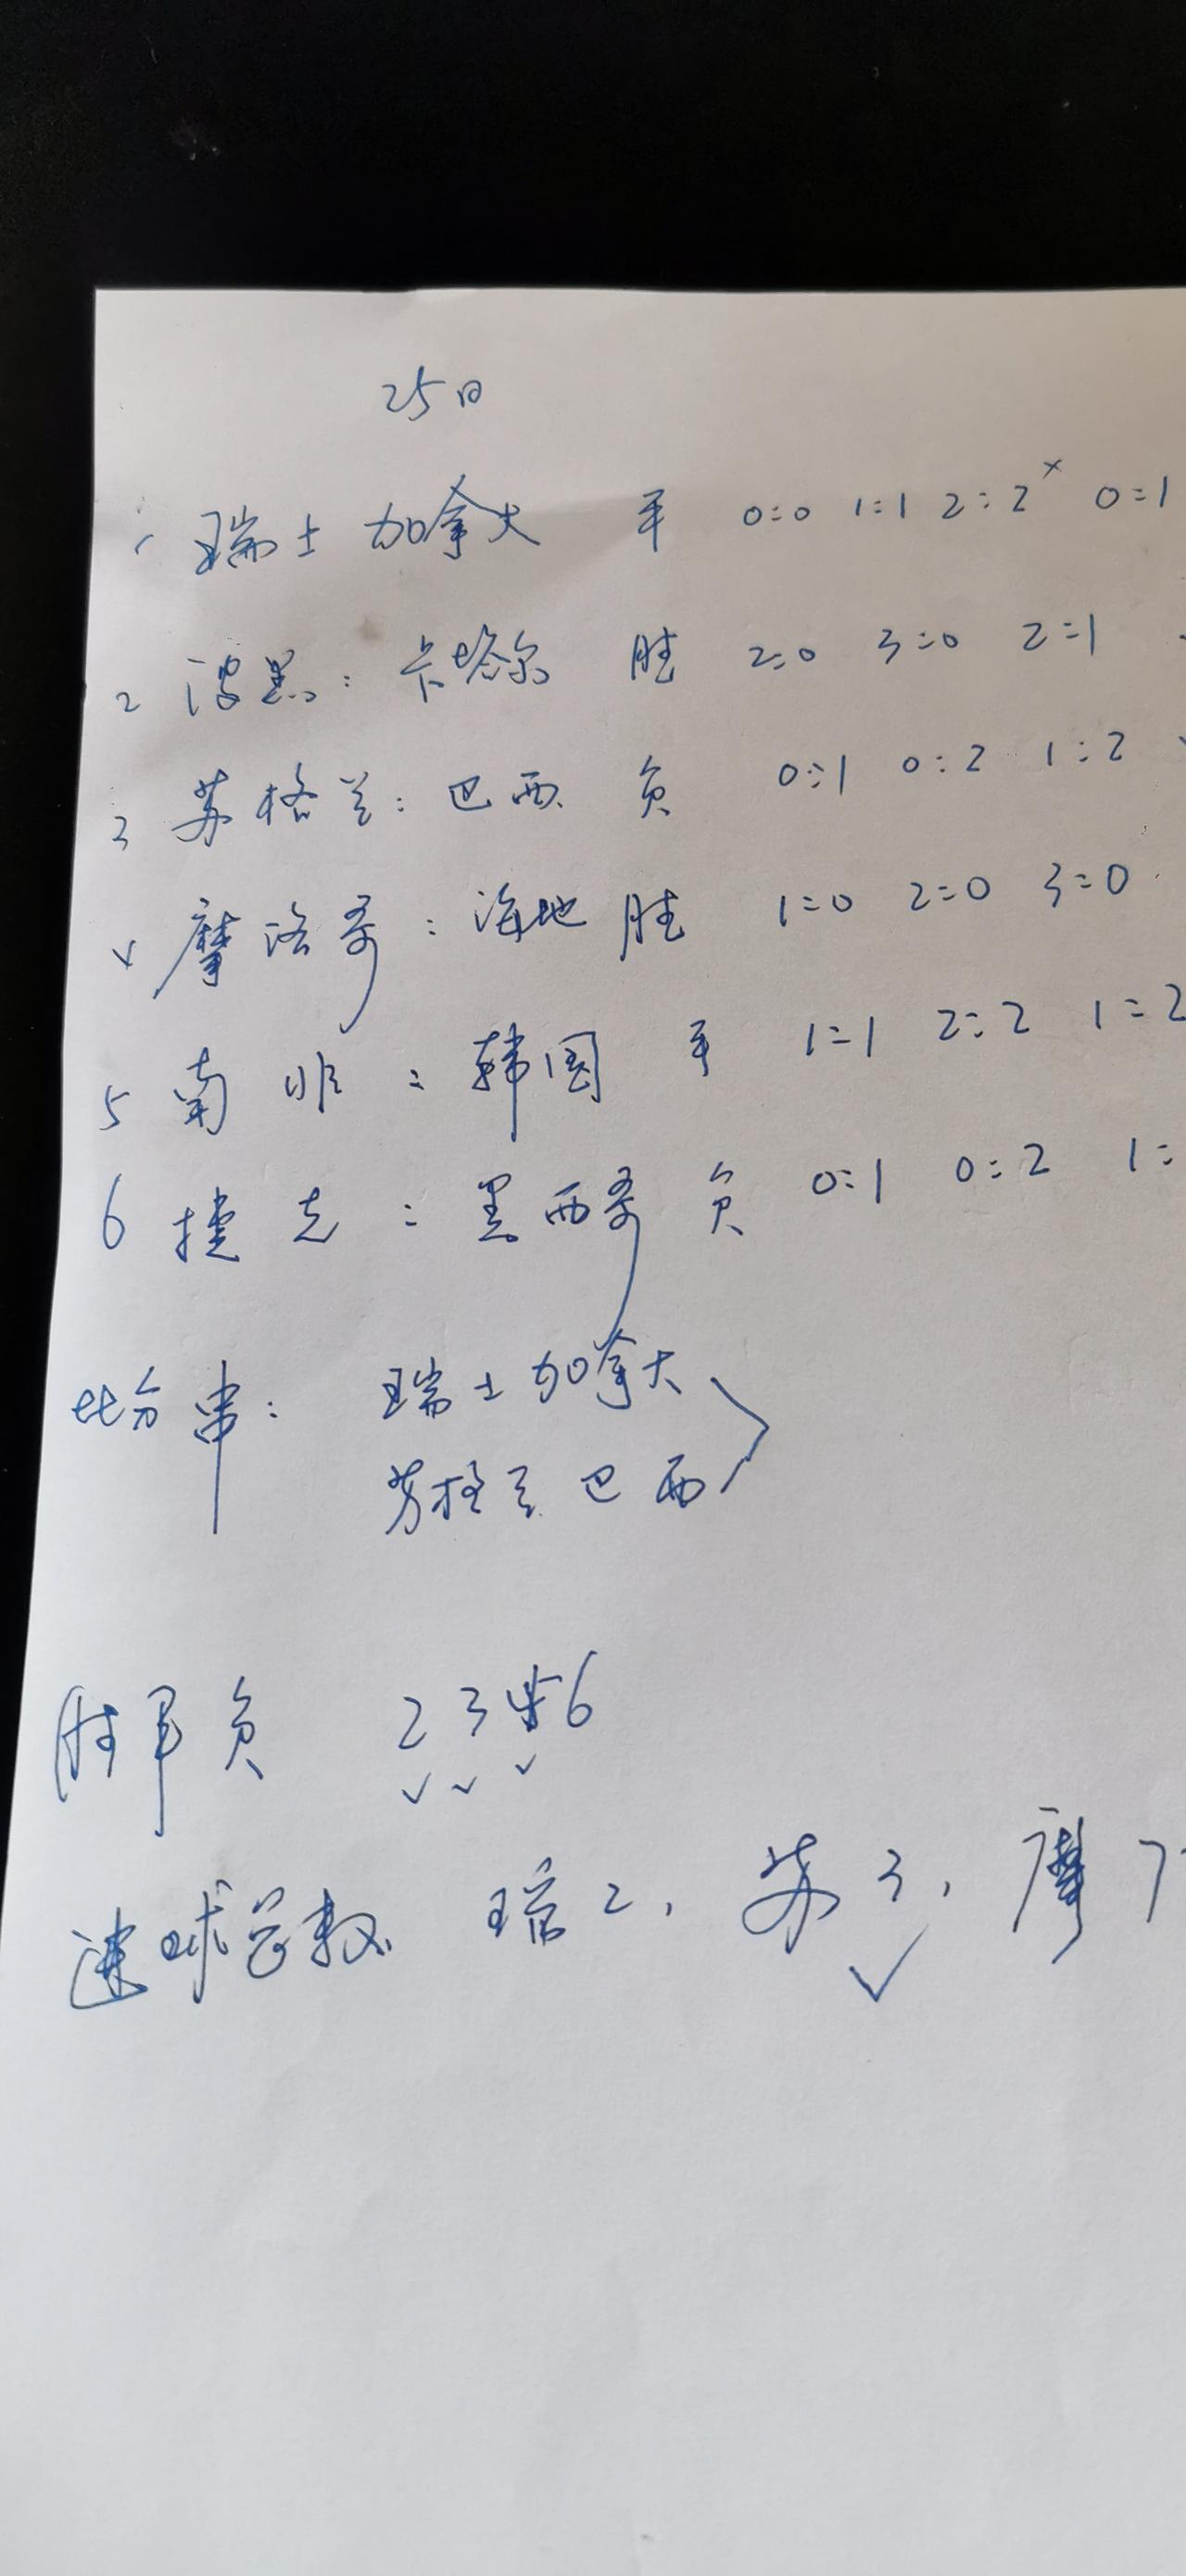 25日
1 瑞士 加拿大 平 0:0 1:1 2:2 × 0:1
2 波黑: 卡塔尔 胜 2:0 3:0 2:1
3 苏格兰: 巴西 负 0:1 0:2 1:2
4 摩洛哥: 海地 胜 1:0 2:0 3:0
5 南非: 韩国 平 1:1 2:2 1:2
6 捷克: 墨西哥 负 0:1 0:2 1:
比分串: 瑞士加拿大
苏格兰 巴西
胜平负 23 6
进球总数 瑞2, 苏3, 摩